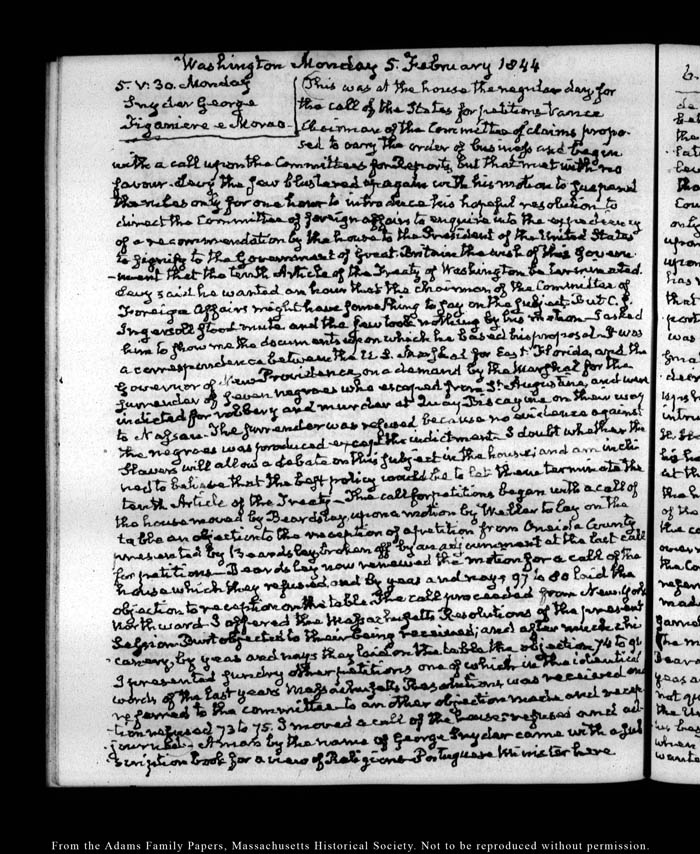 Washington Monday 5. February 1844
5. V: 30. Monday
Snyder George
Figaniere e Morao
This was at the house the regular day for
the call of the States for petitions Vance
Chairman of the Committee of claims propo-
sed to vary the order of business and begin
with a call upon the Committees for Reports, but that met with no
favour. Levy the Jew blustered up again with his motion to suspend
the rules only for one hour to introduce his hopeful resolution to
direct the Committee of foreign affairs to enquire into the expediency
of a recommendation by the house to the President of the United States
to signify to the Government of Great Britain the wish of this Govern-
-ment that the tenth Article of the Treaty of Washington be terminated.
Levy said he wanted an hour that the chairman of the Committee of
Foreign Affairs might have something to say on the subject. But C. J.
Ingersoll stood mute and the Jew took nothing by his motion. I asked
him to show me the documents upon which he based his proposal. It was
a correspondence between the U.S. Marshal for East Florida, and the
Governor of New Providence, on a demand by the Marshal for the
surrender of seven negroes who escaped from St. Augustine, and were
indicted for robbery and murder at Quay Biscayine on their way
to Nassau. The surrender was refused because no evidence against
the negroes was produced except the indictment. I doubt whether the
Slavers will allow a debate on this subject in the house; and am incli
ned to believe that the best policy would be to let them terminate the
tenth Article of the Treaty— The call for petitions began with a call of
the house moved by Beardsley, upon a motion by Weller to lay on the
table an objection to the reception of a petition from Oneida County
presented by Beardsley broken off by an adjournment at the last call
for petitions— Beardsley now renewed the motion for a call of the
house which they refused, and by yeas and nays 97 to 80 laid the
objection to reception on the table. The call proceeded from New-York
Northward. I offered the Massachusetts Resolutions of the present
Session. Burt objected to their being received; and after much chi
-canery, by yeas and nays they laid on the table the objection 74 to 91
I presented sundry other petitions one of which in the identical
words of the last years Massachusetts Resolutions was received and
referred to the committee to an other objection made and recep-
-tion refused 73 to 75. I moved a call of the house—refused and ad-
-journed— A man by the name of George Snyder came with a sub
scription book for a view of Religions. Portuguese Minister here
From the Adams Family Papers, Massachusetts Historical Society. Not to be reproduced without permission.